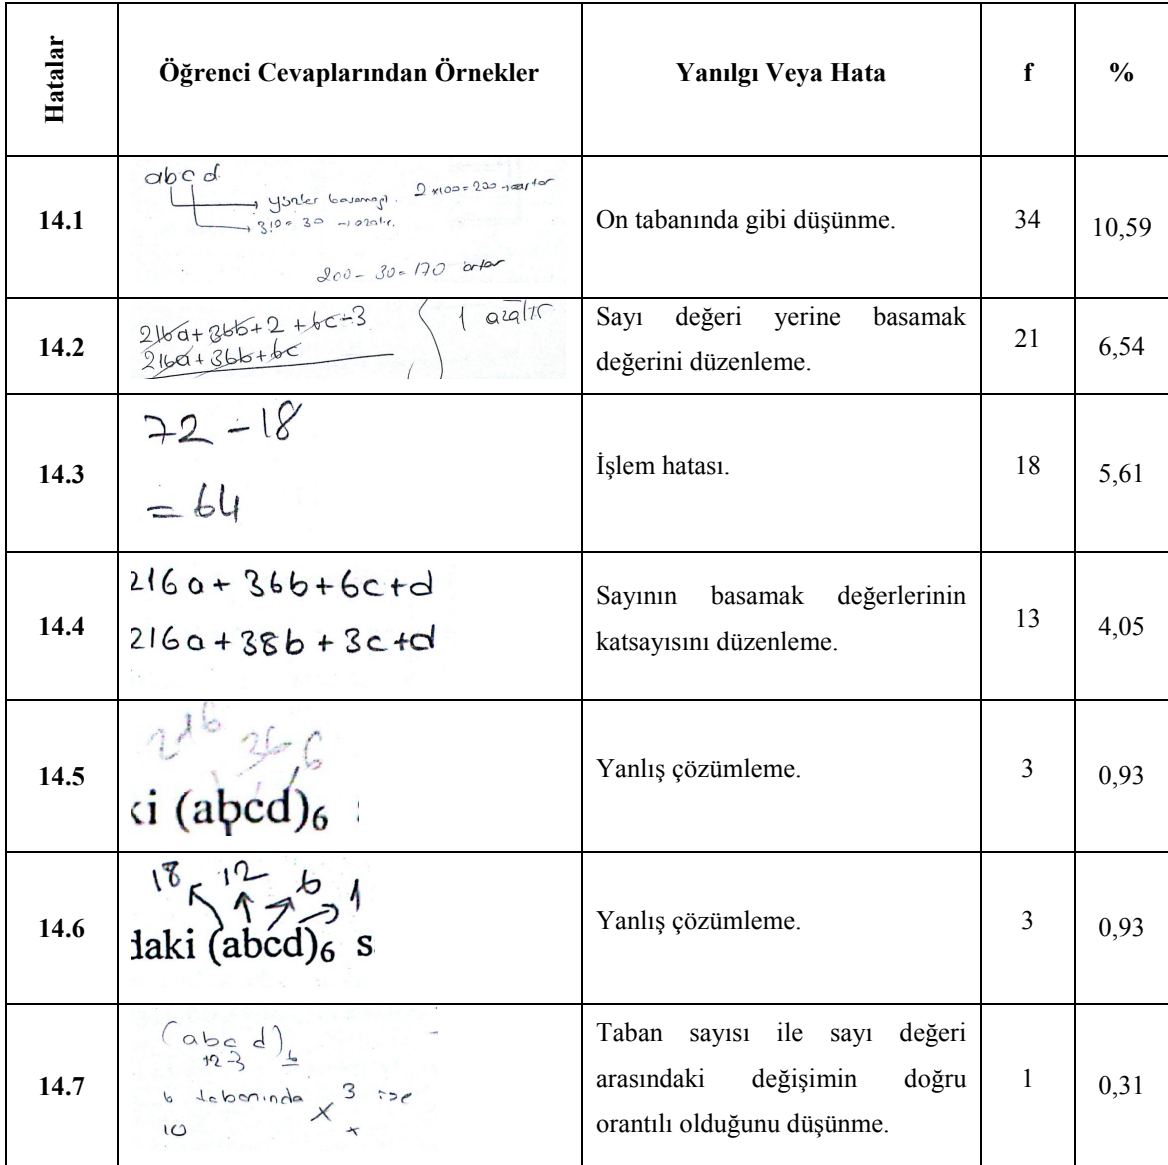 Hatalar
Öğrenci Cevaplarından Örnekler
Yanılgı Veya Hata
f
%
14.1
abcd
yüzler basamağı. 2x100=200 → artar
3.10= 30 → azalır.
200 - 30 = 170 artar
On tabanında gibi düşünme.
34
10,59
14.2
216a+36b+2+6c-3
216a+36b+6c
1 azalır
Sayı değeri yerine basamak
değerini düzenleme.
21
6,54
14.3
72 - 18
= 64
İşlem hatası.
18
5,61
14.4
216a+36b+6c+d
216a+38b+3c+d
Sayının basamak değerlerinin
katsayısını düzenleme.
13
4,05
14.5
216 36 6
ki (abcd)6
Yanlış çözümleme.
3
0,93
14.6
18 12 6 1
daki (abcd)6 s
Yanlış çözümleme.
3
0,93
14.7
(abcd)6
6 tabanında 3 ise
10 x
Taban sayısı ile sayı değeri
arasındaki değişimin doğru
orantılı olduğunu düşünme.
1
0,31